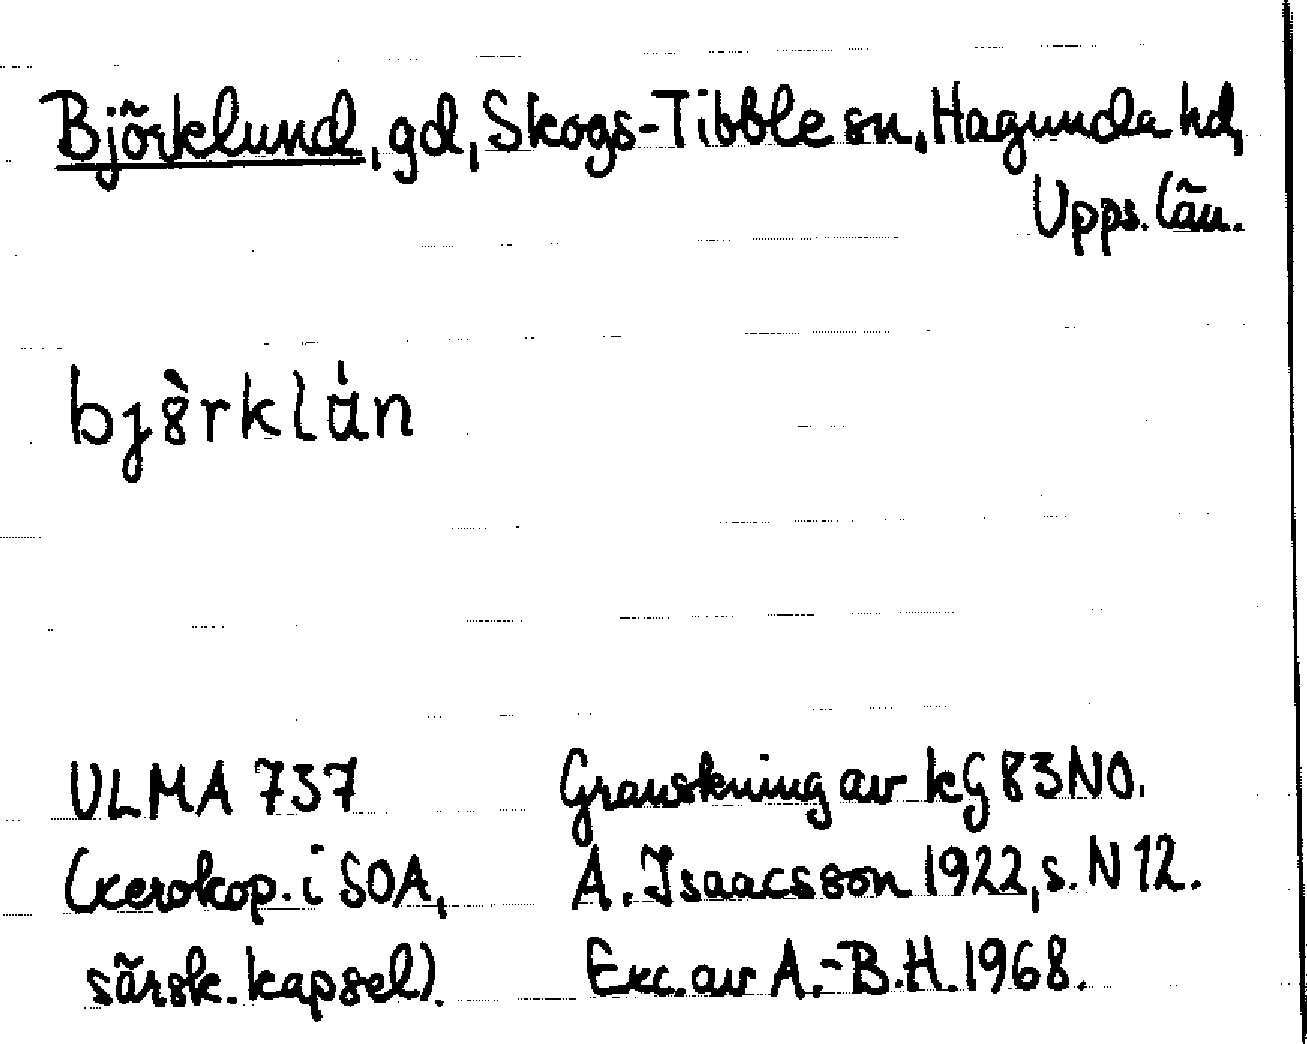 Björklund, gd, Skogs-Tibble sn, Hagunda hd,
Upps. län.
bjö̀rklùn
ULMA 737
(xerokop. i SOA,
särsk. kapsel).
Granskning av kG 83 NO.
A. Isaacsson 1922, s. N 12.
Exc. av A.-B.H. 1968.